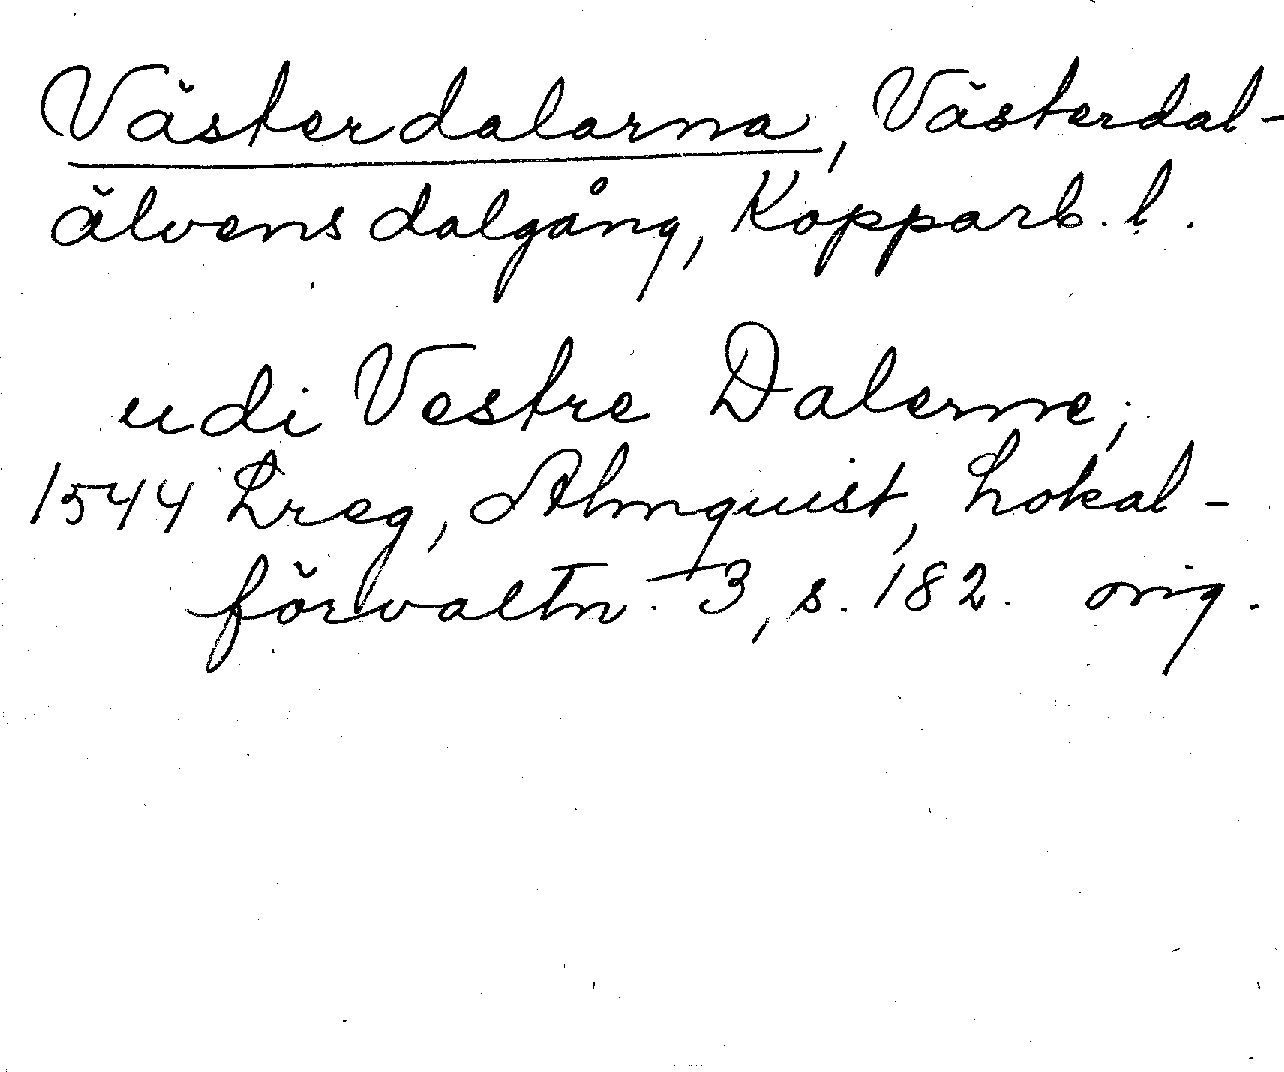 Västerdalarna, Västerdal-
älvens dalgång, Kopparb. l.
udi Vestre Dalerne;
1544 Lreg, Almquist, Lokal-
förvaltn. 3, s. 182. orig.